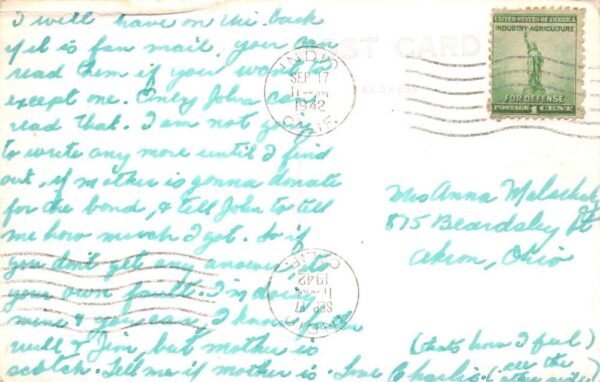 I will have on the back
yet is fan mail. you can
read them if your want to
except one. Only John can
read that. I am not going
to write any more until I find
out, if mother is gonna donate
for the bond, & tell John to tell
me how much I got. So if
you don't get any answer, its
your own fault. I'm doing
mine & you can, I know you
will & Jim, but mother is
scotch. Tell me if mother is. Love Charlie.
(thats how I feel)
(see the other side)
POST CARD
ADDRESS
INDIO
SEP 17
11-AM
1942
CALIF.
UNITED STATES OF AMERICA
INDUSTRY-AGRICULTURE
FOR DEFENSE
POSTAGE 1 CENT
Mrs Anna
875 Beardsley St
Akron, Ohio
INDIO
SEP 17
11-AM
1942
CALIF.